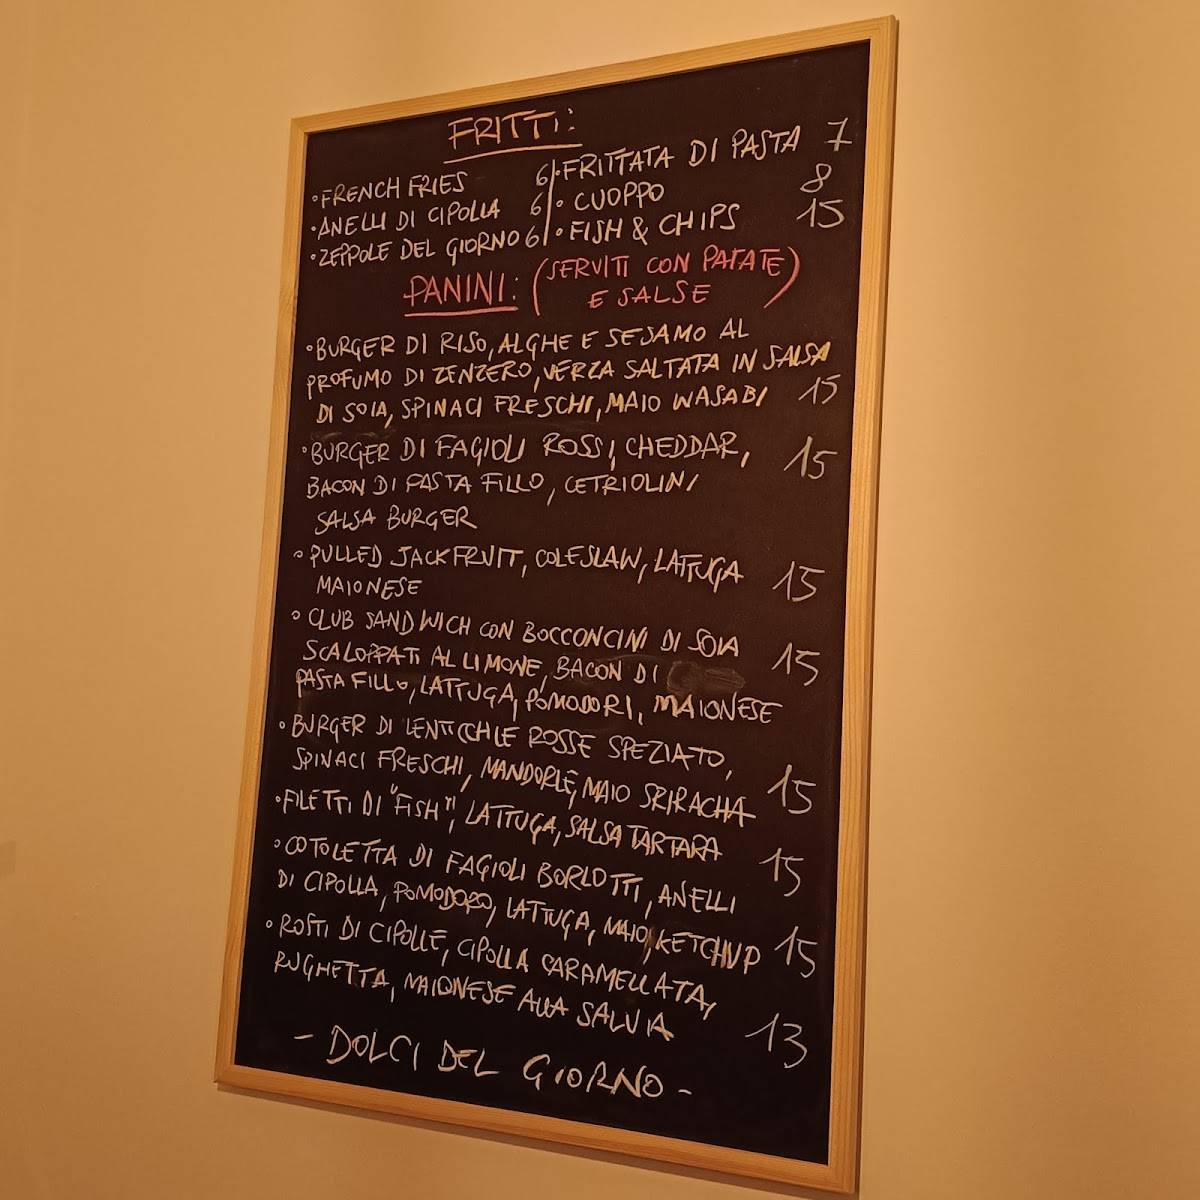 FRITTI:
• FRENCH FRIES 6
• ANELLI DI CIPOLLA 6
• ZEPPOLE DEL GIORNO 6
• FRITTATA DI PASTA 7
• CUOPPO 8
• FISH & CHIPS 15
PANINI: (SERVITI CON PATATE
E SALSE)
• BURGER DI RISO, ALGHE E SESAMO AL
PROFUMO DI ZENZERO, VERZA SALTATA IN SALSA
DI SOIA, SPINACI FRESCHI, MAIO WASABI 15
• BURGER DI FAGIOLI ROSSI, CHEDDAR, 15
BACON DI PASTA FILLO, CETRIOLINI
SALSA BURGER
• PULLED JACKFRUIT, COLESLAW, LATTUGA 15
MAIONESE
• CLUB SANDWICH CON BOCCONCINI DI SOIA 15
SCALOPPATI AL LIMONE, BACON DI
PASTA FILLO, LATTUGA, POMODORI, MAIONESE
• BURGER DI LENTICCHIE ROSSE SPEZIATO,
SPINACI FRESCHI, MANDORLE, MAIO SRIRACHA 15
• FILETTI DI "FISH", LATTUGA, SALSA TARTARA 15
• COTOLETTA DI FAGIOLI BORLOTTI, ANELLI
DI CIPOLLA, POMODORO, LATTUGA, MAIO, KETCHUP 15
• ROSTI DI CIPOLLE, CIPOLLA CARAMELLATA,
RUGHETTA, MAIONESE ALLA SALVIA 13
- DOLCI DEL GIORNO -